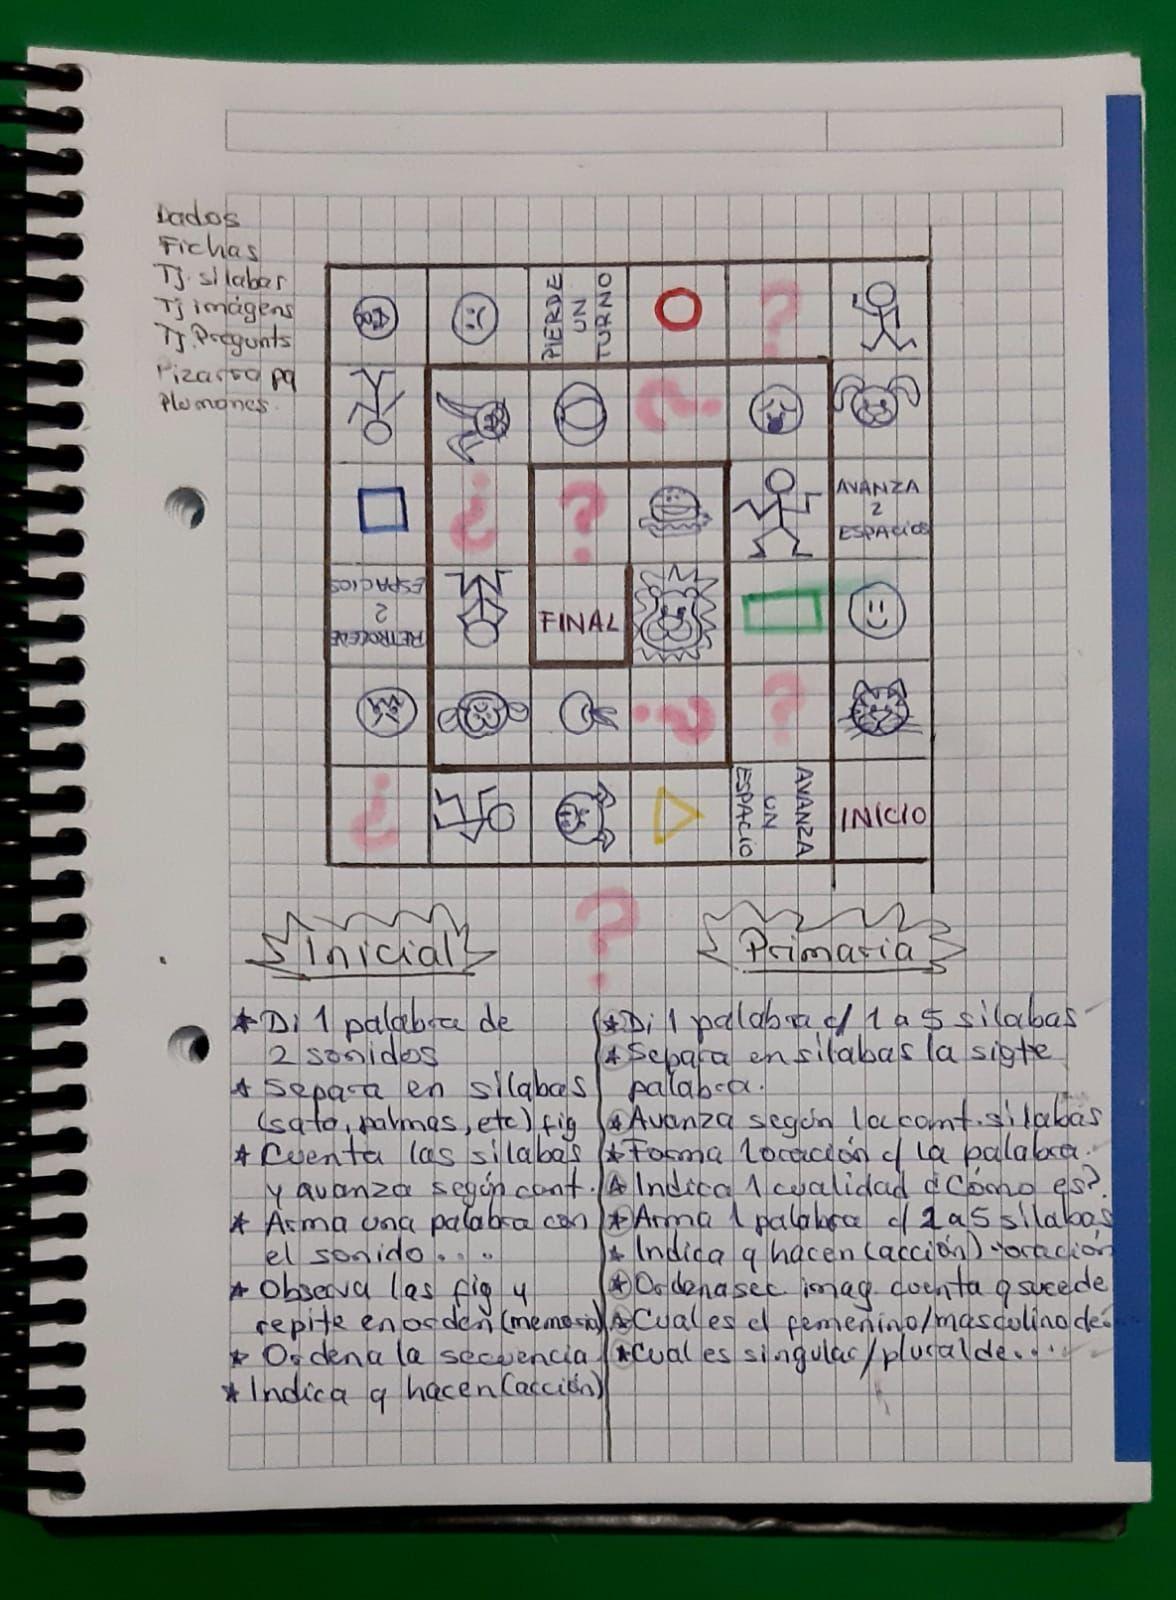 Dados
Fichas
Tj. sílabas
Tj imágens
Tj. Pregunts
Pizarra pq
Plumones.
PIERDE
UN
TURNO
?
?
AVANZA
2
ESPACIOS
?
?
RETROCEDE
2
ESPACIOS
FINAL
?
?
?
AVANZA
UN
ESPACIO
INICIO
?
Inicial
* Di 1 palabra de
2 sonidos
* Separa en sílabas
(salto, palmas, etc) fig
* Cuenta las sílabas
y avanza según cant.
* Arma una palabra con
el sonido....
* Observa las fig y
repite en orden (memoria)
* Ordena la secuencia
* Indica q hacen (acción)
Primaria
* Di 1 palabra c/ 1 a 5 sílabas
* Separa en sílabas la sigte
palabra.
* Avanza según la cant. sílabas
* Forma 1 oración c/ la palabra.
* Indica 1 cualidad ¿Cómo es?
* Arma 1 palabra c/ 2 a 5 sílabas
* Indica q hacen (acción) - oración
* Ordena sec imag cuenta q sucede
* Cual es el femenino/masculino de..
* Cual es singular/plural de....